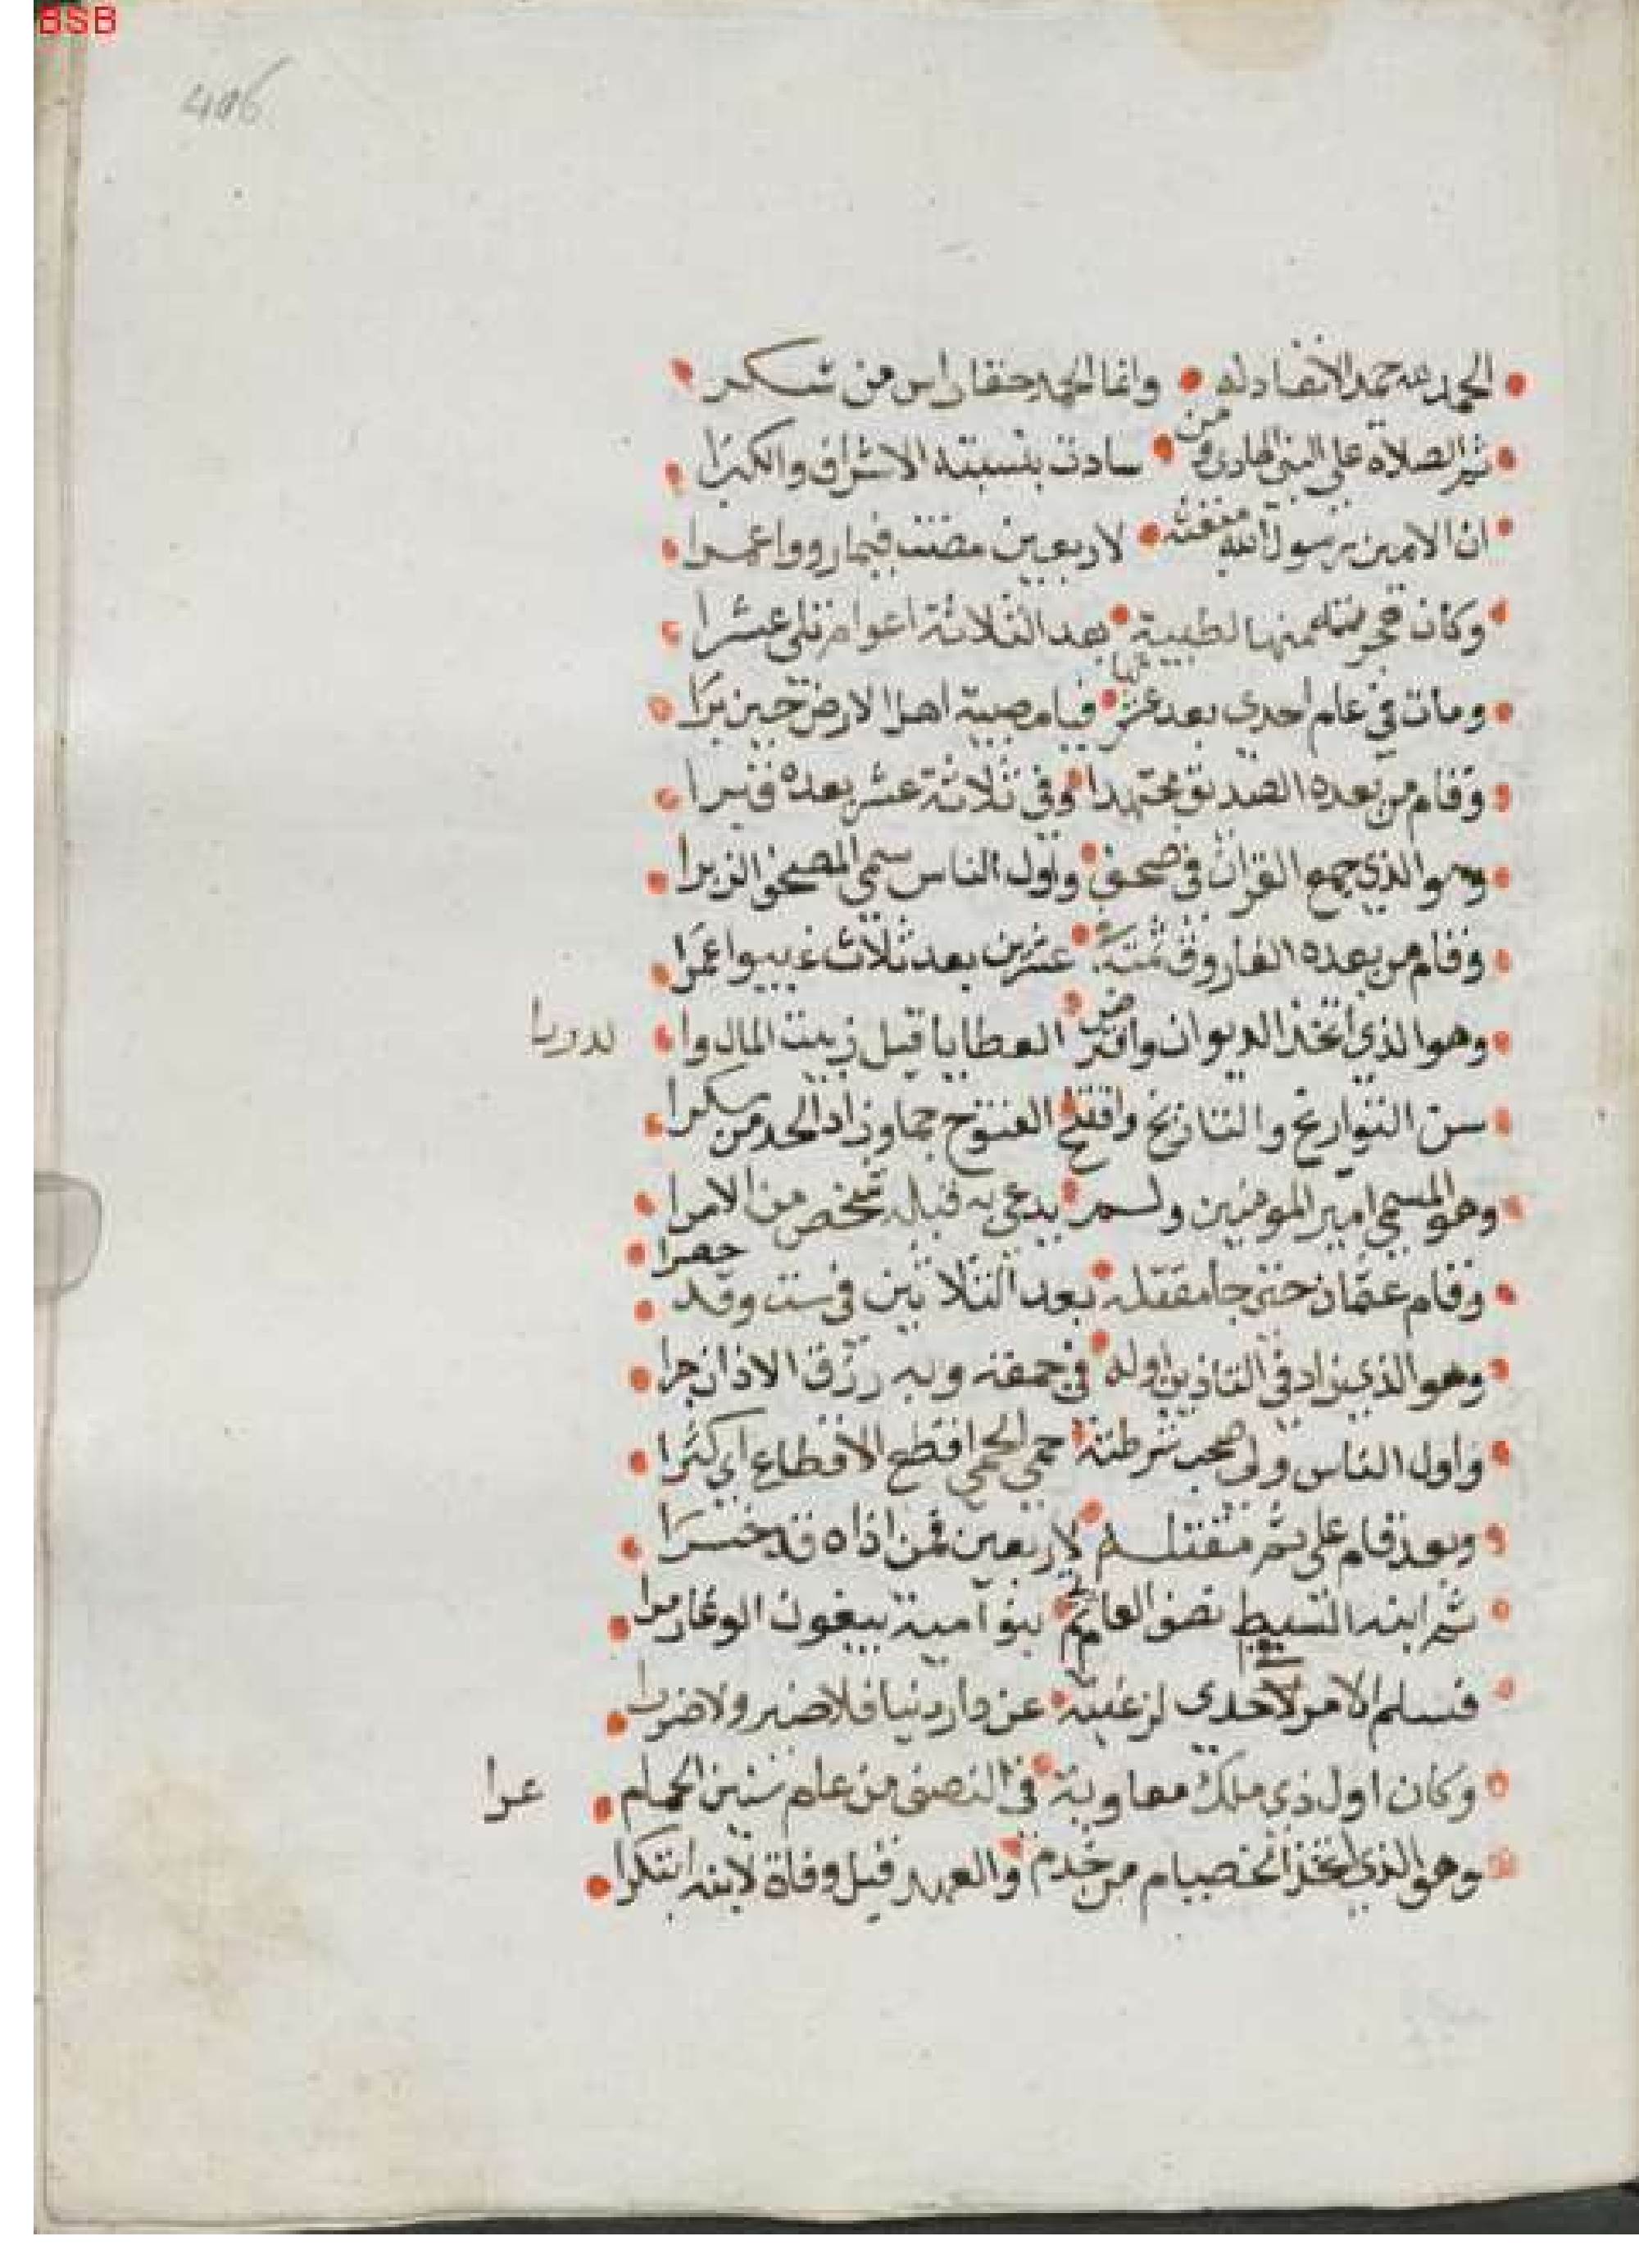 BSB
406
الحمد لله حمدا لا نفاد له وانما الحمد حقا راس من شكر
ثم الصلاة على النبي الهادي ومن سادت بنسبته الاشراف والكبرا
ان الامين رسول الله مبعثه لاربعين مضت فيما رووا عمرا
وكان هجرته منها لطيبة بعد الثلاثة اعوام تلي عشرا
ومات في عام احدى بعد عشرتها فيا مصيبة اهل الارض حين سرا
وقام من بعده الصديق مجتهدا وفي ثلاثة عشر بعده قبرا
وهو الذي جمع القران في صحف واول الناس سمى المصحف الزبرا
وقام من بعده الفاروق ثمة عشرين بعد ثلاث غيبوا عمرا
وهو الذي اتخذ الديوان وافترض العطايا قيل وبيت المال والدررا
سن التواريخ والتاريخ وافتتح الفتوح جما وزاد الحد من سكرا
وهو المسمى امير المومنين ولم يدعى به قبله شخص من الامرا
وقام عثمان حتى جا مقتله بعد الثلاثين في ست وقد حصرا
وهو الذي زاد في التاذين اوله في جمعة وبه رزق الاذان جرا
واول الناس ولى صحب شرطته حمى الحمى اقطع الاقطاع اي كثرا
وبعد قام علي ثم مقتله لاربعين فمن اذاه قد خسرا
ثم ابنه السبط نصف العام ثم بنو امية يبغون الوغا زمرا
فسلم الامر لاحدى لرغبته عن دار دنيا فلا ضير ولا ضررا
وكان اول ذي ملك معاوية في النصف من عام ستين الحمام عرا
وهو الذي اتخذ الخصيام من خدم والعهد قبل وفاة لابنه ابتكرا